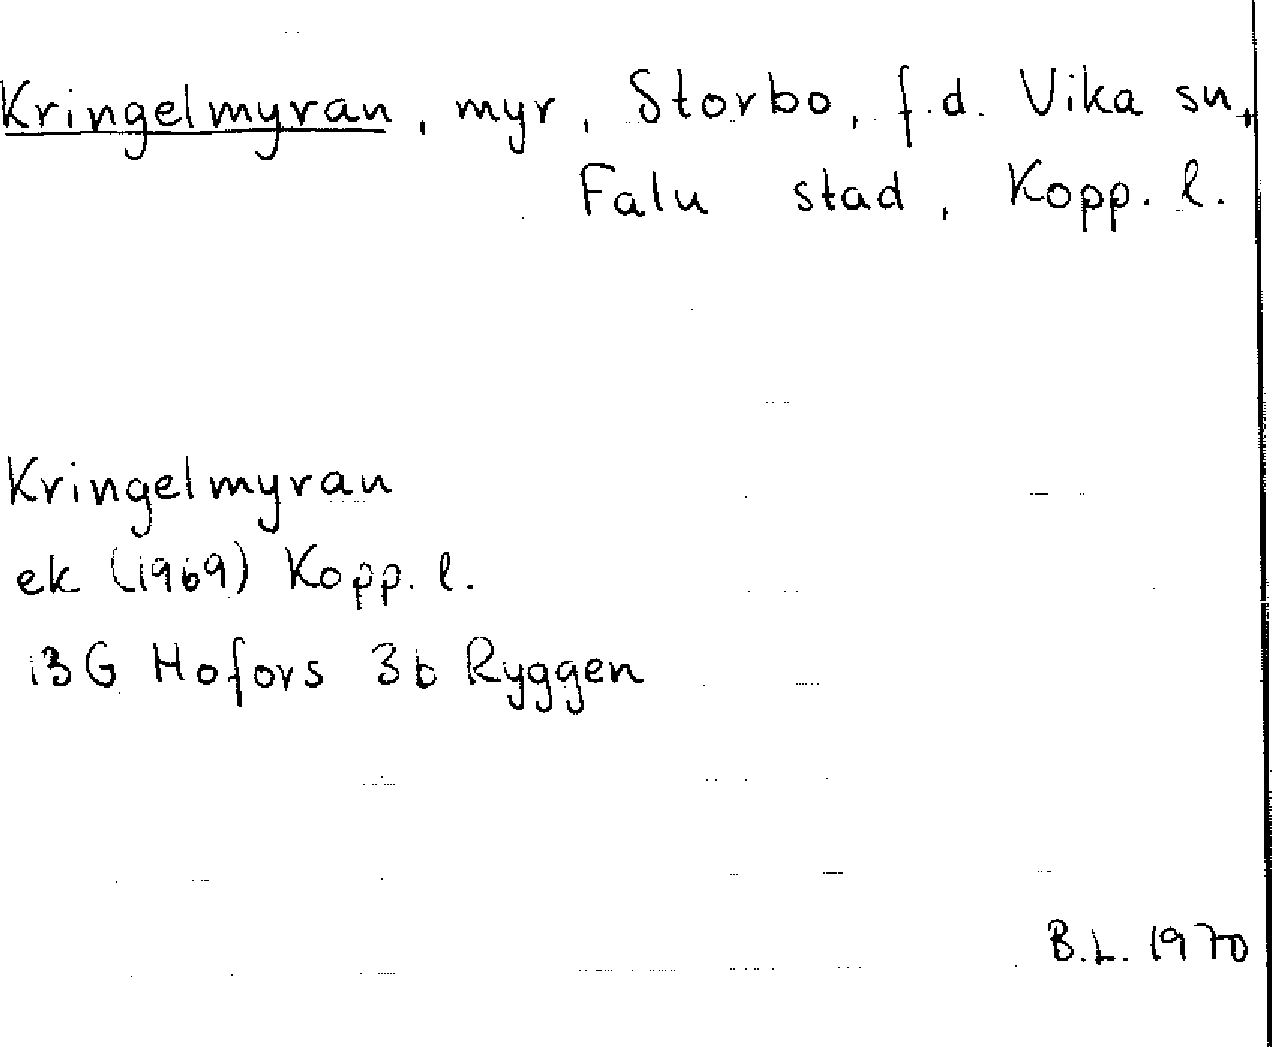 Kringelmyran, myr, Storbo, f.d. Vika sn,
Falu stad, Kopp. l.
Kringelmyran
ek (1969) Kopp. l.
13G Hofors 3b Ryggen
B.L. 1970